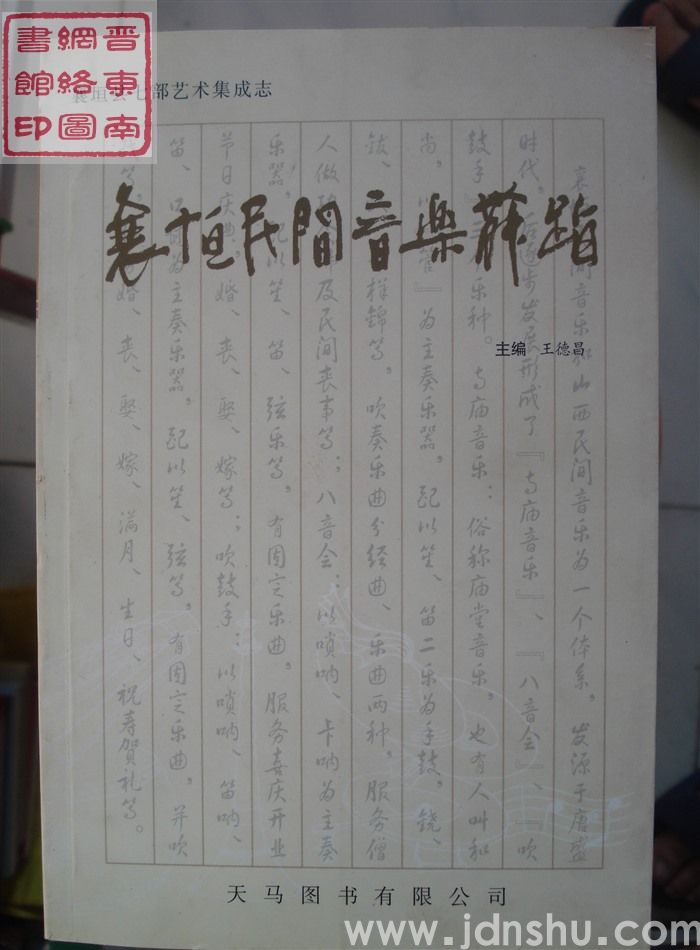 晋東南
網絡圖
書館印
襄垣县七部艺术集成志
襄垣民間音樂舞蹈
主编 王德昌
襄 间音乐和山西民间音乐为一个体系。发源于唐盛
时代。后逐步发展形成了『寺庙音乐』、『八音会』、『吹
鼓手 个乐种。寺庙音乐:俗称庙堂音乐。也有人叫和
尚。以『管』为主奏乐器。配以笙、笛二乐为手鼓。铙、
钹、 样锦等。吹奏乐曲分经曲、乐曲两种。服务僧
人做 及民间丧事等;八音会:以唢呐、卡呐为主奏
乐器。配以笙、笛、弦乐等。有固定乐曲。服务喜庆开业
节日庆典、婚、丧、娶、嫁等;吹鼓手:以唢呐、笛呐、
笛、口 为主奏乐器。配以笙、弦等。有固定乐曲。并吹
等。 婚、丧、娶、嫁、满月、生日、祝寿贺礼等。
天马图书有限公司
www.jdnshu.com